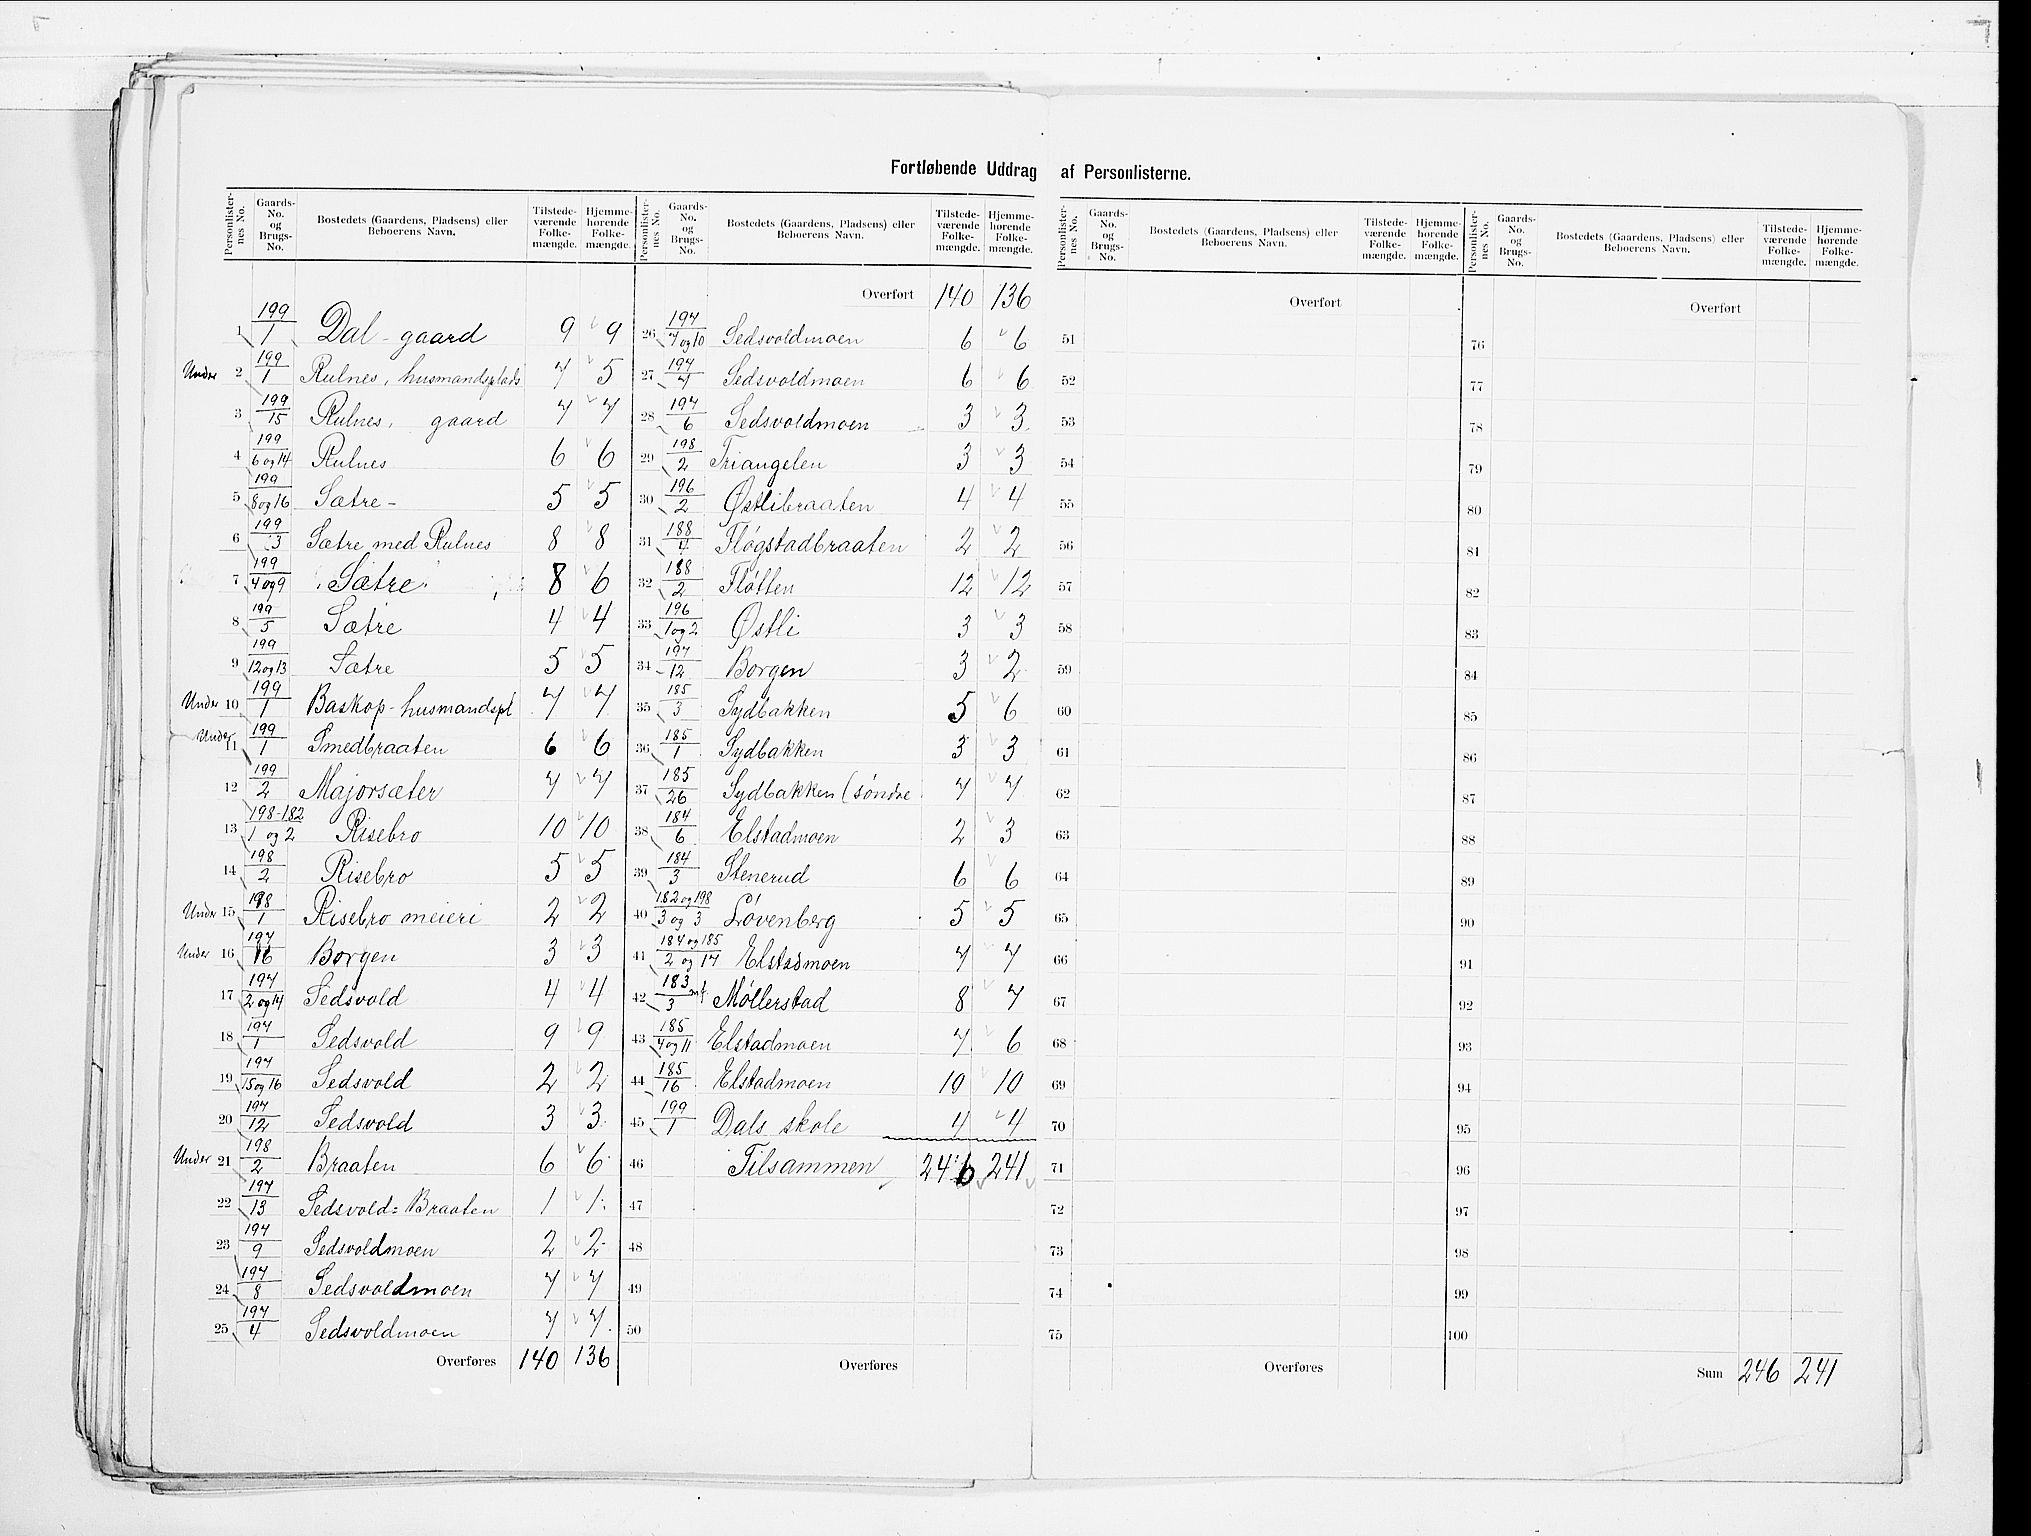 Fortløbende Uddrag af Personlisterne.
Personlisternes No. | Gaards-No. og Brugs-No. | Bostedets (Gaardens, Pladsens) eller Beboerens Navn. | Tilstedeværende Folkemængde. | Hjemmehørende Folkemængde.
1 199/1 Dal - gaard 9 9
Under 2 199/1 Rulnes, husmandsplads 7 5
3 199/15 Rulnes, gaard 7 7
4 199/6 og 14 Rulnes 6 6
5 199/8 og 16 Sætre - 5 5
6 199/3 Sætre med Rulnes 8 8
7 199/4 og 9 Sætre 8 6
8 199/5 Sætre 4 4
9 199/12 og 13 Sætre 5 5
Under 10 199/1 Baskop - husmandspl 7 7
Under 11 199/1 Smedbraaten 6 6
12 199/2 Majorsæter 7 7
13 198-182/1 og 2 Risebro 10 10
14 198/2 Risebro 5 5
Under 15 198/1 Risebro meieri 2 2
Under 16 197/16 Borgen 3 3
17 197/2 og 14 Sedsvold 4 4
18 197/1 Sedsvold 9 9
19 197/15 og 16 Sedsvold 2 2
20 197/12 Sedsvold 3 3
Under 21 198/2 Braaten 6 6
22 197/13 Sedsvold = Braaten 1 1
23 197/9 Sedsvoldmoen 2 2
24 197/8 Sedsvoldmoen 7 7
25 197/4 Sedsvoldmoen 7 7
Overføres 140 136
Personlisternes No. | Gaards-No. og Brugs-No. | Bostedets (Gaardens, Pladsens) eller Beboerens Navn. | Tilstedeværende Folkemængde. | Hjemmehørende Folkemængde.
Overført 140 136
26 197/7 og 10 Sedsvoldmoen 6 6
27 197/7 Sedsvoldmoen 6 6
28 197/6 Sedsvoldmoen 3 3
29 198/2 Triangelen 3 3
30 196/2 Østlibraaten 4 4
31 188/4 Fløgstadbraaten 2 2
32 188/2 Fløtten 12 12
33 196/1 og 2 Østli 3 3
34 197/12 Borgen 3 2
35 185/3 Sydbakken 5 6
36 185/1 Sydbakken 3 3
37 185/26 Sydbakken (søndre 7 7
38 184/6 Elstadmoen 2 3
39 184/3 Stenerud 6 6
40 182 og 198/3 og 3 Løvenberg 5 5
41 184 og 185/2 og 17 Elstadmoen 7 7
42 183/3 m.f. Møllerstad 8 7
43 185/4 og 11 Elstadmoen 7 6
44 185/16 Elstadmoen 10 10
45 199/1 Dals skole 4 4
46 Tilsammen 246 241
47
48
49
50
Overføres
Personlisternes No. | Gaards-No. og Brugs-No. | Bostedets (Gaardens, Pladsens) eller Beboerens Navn. | Tilstedeværende Folkemængde. | Hjemmehørende Folkemængde.
Overført
51
52
53
54
55
56
57
58
59
60
61
62
63
64
65
66
67
68
69
70
71
72
73
74
75
Overføres
Personlisternes No. | Gaards-No. og Brugs-No. | Bostedets (Gaardens, Pladsens) eller Beboerens Navn. | Tilstedeværende Folkemængde. | Hjemmehørende Folkemængde.
Overført
76
77
78
79
80
81
82
83
84
85
86
87
88
89
90
91
92
93
94
95
96
97
98
99
100
Sum 246 241